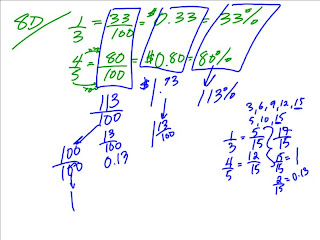 8D/ 1/3 = 33/100 = $0.33 = 33%
4/5 = 80/100 = $0.80 = 80%
113/100 $1.13 113%
13/100 1 13/100
0.13
100/100
1
3, 6, 9, 12, 15
5, 10, 15
1/3 = 5/15
4/5 = 12/15 15/15 = 1
2/15 = 0.13